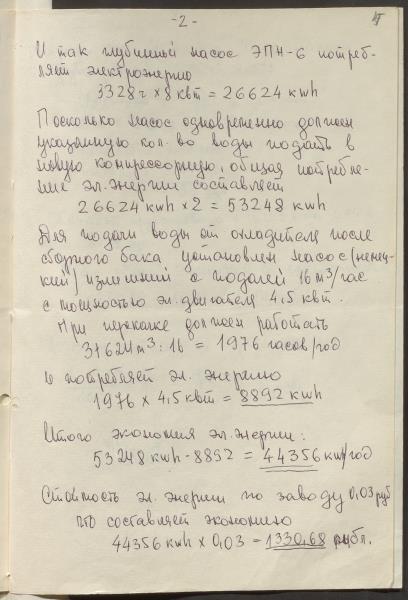 -2-
И так глубинный насос ЭПН-6 потреб-
ляет электроэнергию
3328 г × 8 квт = 26624 kwh
Поскольку насос одновременно должен
указанную кол. во воды подать в
новую компрессорную, общая потребле-
ние эл. энергии составляет
26624 kwh × 2 = 53248 kwh
Для подачи воды от охладителя после
сборного бака установлен насос (немец-
кий) излишний с подачей 16 m³/час
с мощностью эл. двигателя 4,5 квт.
При должен работать
31624 m³ : 16 = 1976 часов/год
и потребляет эл. энергию
1976 × 4,5 квт = 8892 kwh
Итого экономия эл. энергии:
53248 kwh - 8892 = 44356 kwh/год
Стоимость эл. энергии по заводу 0,03 руб
что составляет экономию
44356 kwh × 0,03 = 1330,68 рубл.